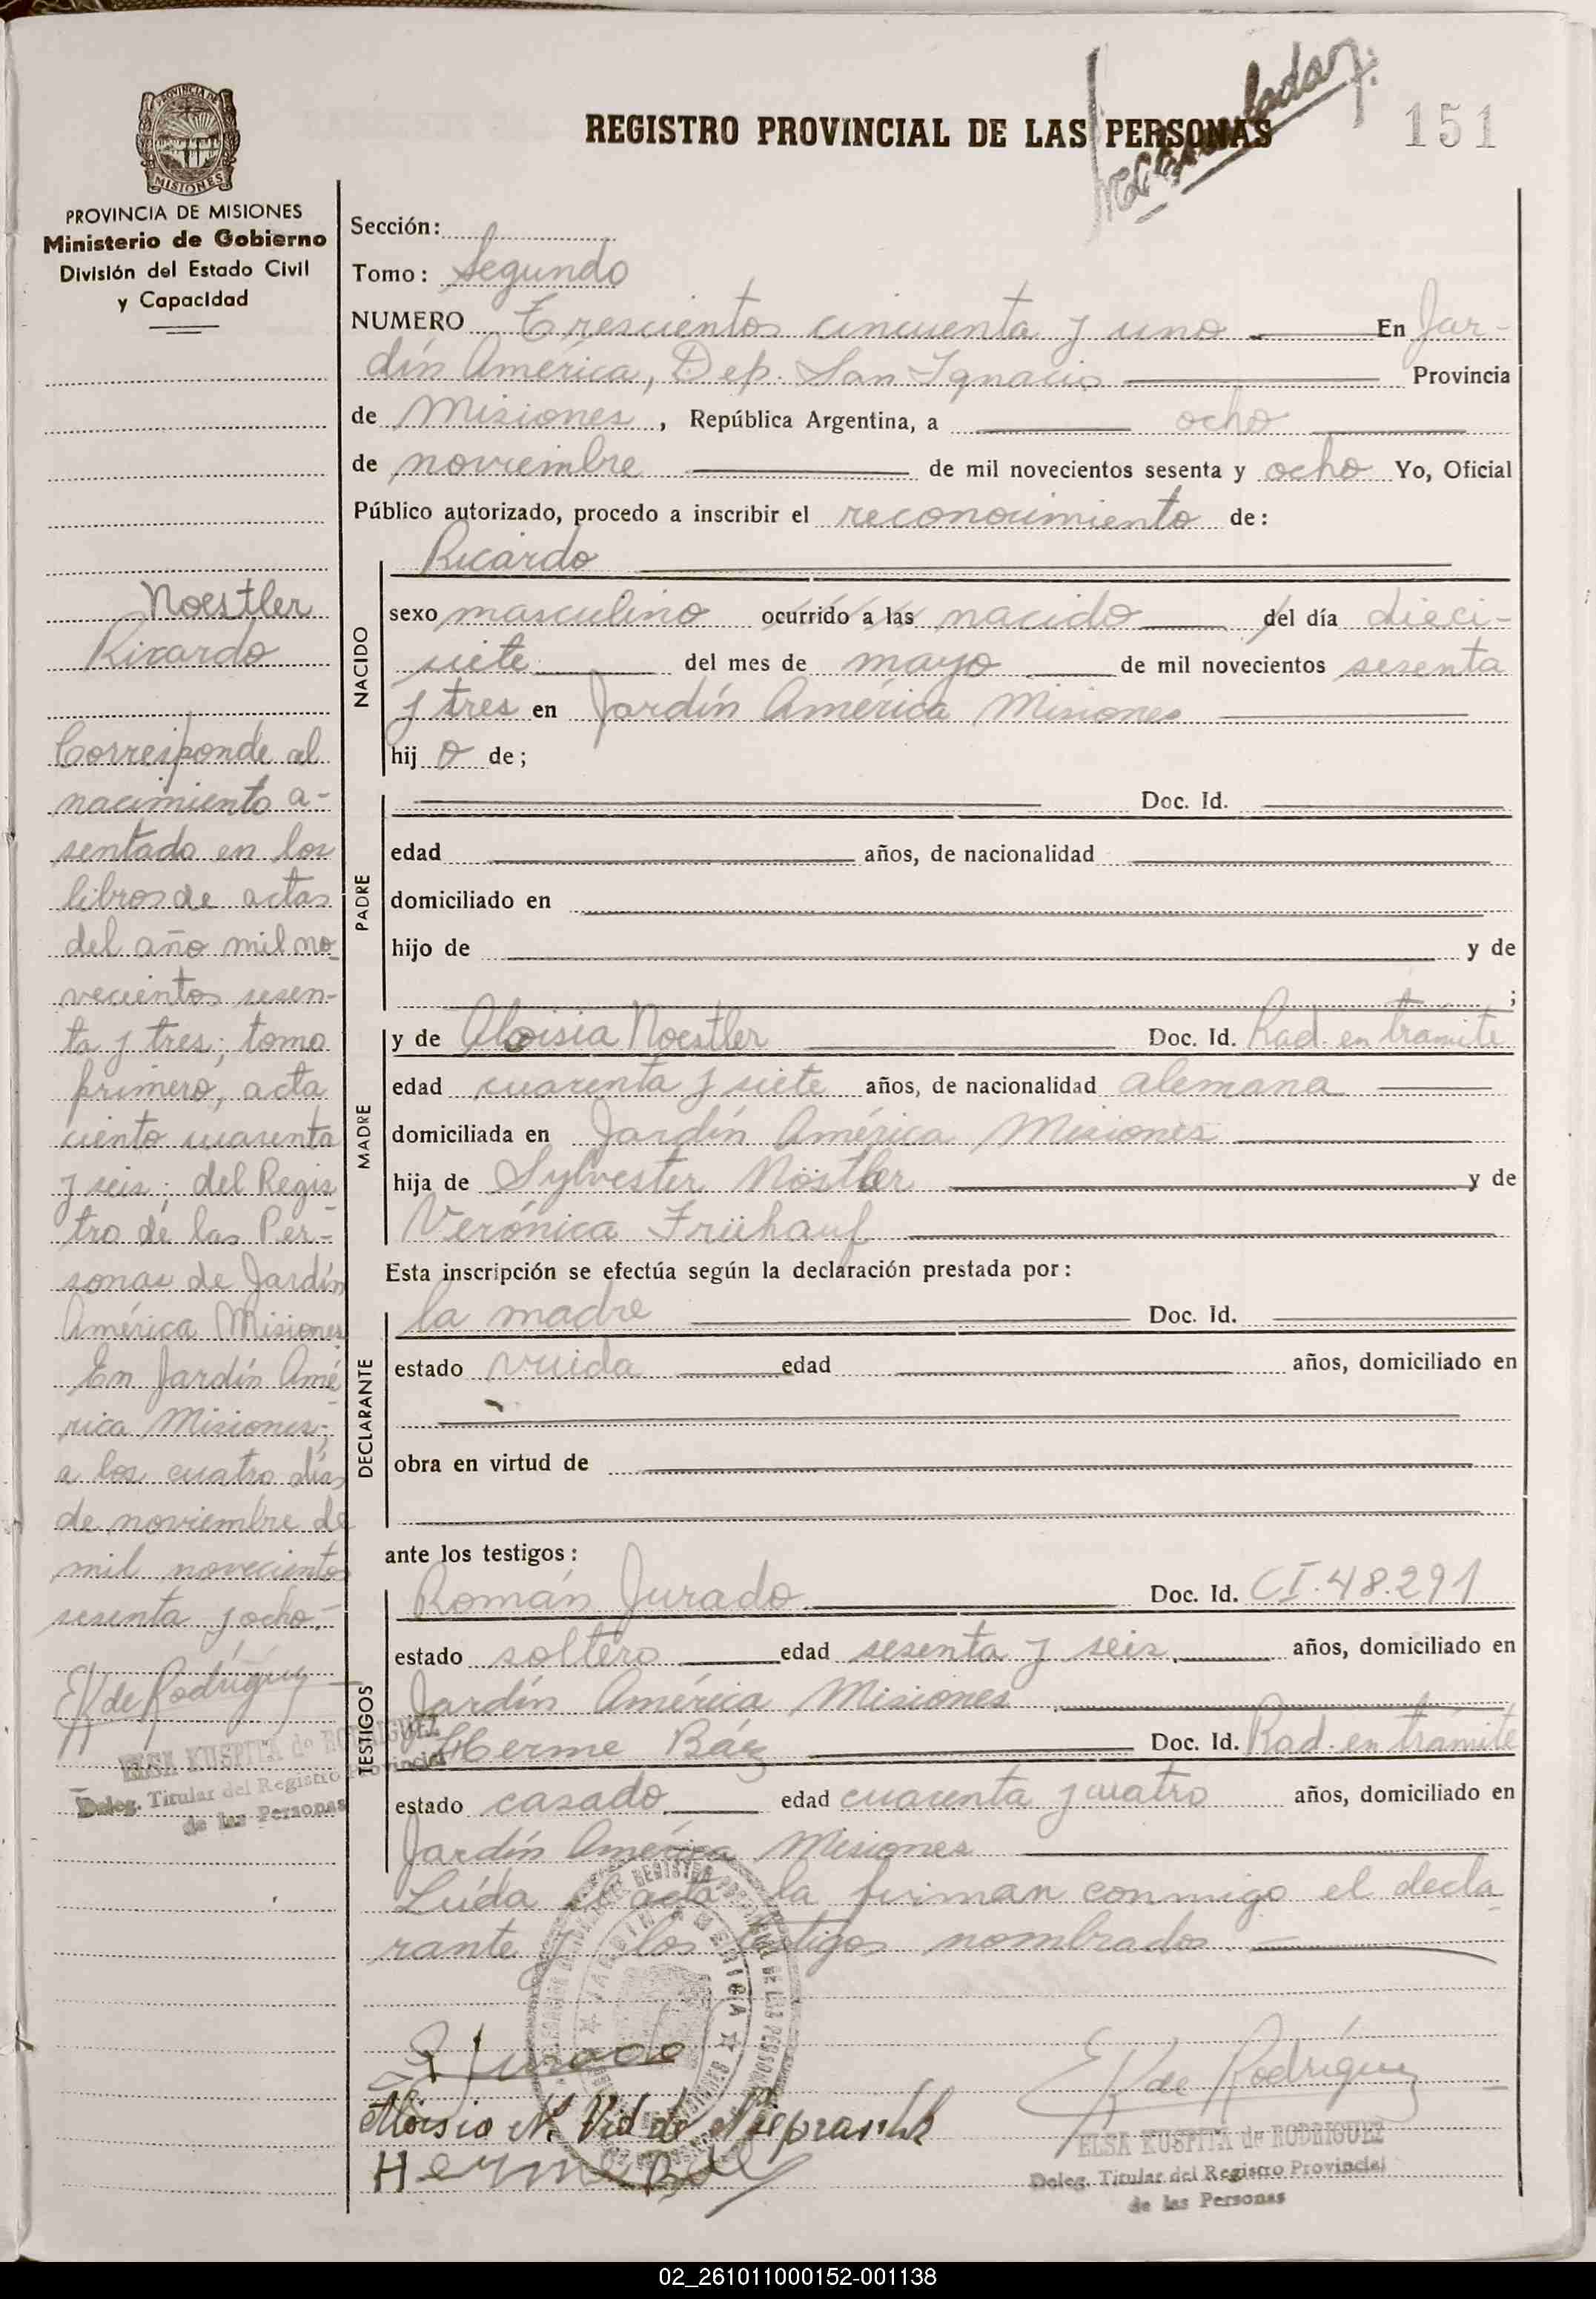 151
REGISTRO PROVINCIAL DE LAS PERSONAS
PROVINCIA DE MISIONES
Ministerio de Gobierno
División del Estado Civil
y Capacidad
Noestler
Ricardo
Corresponde al
nacimiento a-
sentado en los
libros de actas
del año mil no-
vecientos sesen-
ta y tres; tomo
primero, acta
ciento cuarenta
y seis; del Regis
tro de las Per-
sonas de Jardín
América Misiones
En Jardín Amé
rica Misiones;
a los cuatro días
de noviembre de
mil novecientos
sesenta y ocho.-
EK de Rodríguez
ELSA KUSPITA de RODRIGUEZ
Deleg. Titular del Registro Provincial
de las Personas
Sección:
Tomo: Segundo
NUMERO Trescientos cincuenta y uno En Jar-
dín América, Dep. San Ignacio Provincia
de Misiones, República Argentina, a ocho
de noviembre de mil novecientos sesenta y ocho Yo, Oficial
Público autorizado, procedo a inscribir el reconocimiento de:
NACIDO
Ricardo
sexo masculino ocurrido a las nacido del día dieci-
siete del mes de mayo de mil novecientos sesenta
y tres en Jardín América Misiones
hijo de;
PADRE
Doc. Id.
edad años, de nacionalidad
domiciliado en
hijo de y de
;
MADRE
y de Aloisia Noestler Doc. Id. Rad. en trámite
edad cuarenta y siete años, de nacionalidad alemana
domiciliada en Jardín América Misiones
hija de Sylvester Nöstler y de
Verónica Frühauf
Esta inscripción se efectúa según la declaración prestada por:
DECLARANTE
la madre Doc. Id.
estado viuda edad años, domiciliado en
obra en virtud de
ante los testigos:
TESTIGOS
Román Jurado Doc. Id. CI.48.291
estado soltero edad sesenta y seis años, domiciliado en
Jardín América Misiones
Herme Báez Doc. Id. Rad. en trámite
estado casado edad cuarenta y cuatro años, domiciliado en
Jardín América Misiones
Leída el acta la firman conmigo el decla
rante y los testigos nombrados.
JARDIN AMERICA
R Jurado
EK de Rodríguez
Aloisia N. Vd de
Herme Báez
ELSA KUSPITA de RODRIGUEZ
Deleg. Titular del Registro Provincial
de las Personas
02_261011000152-001138